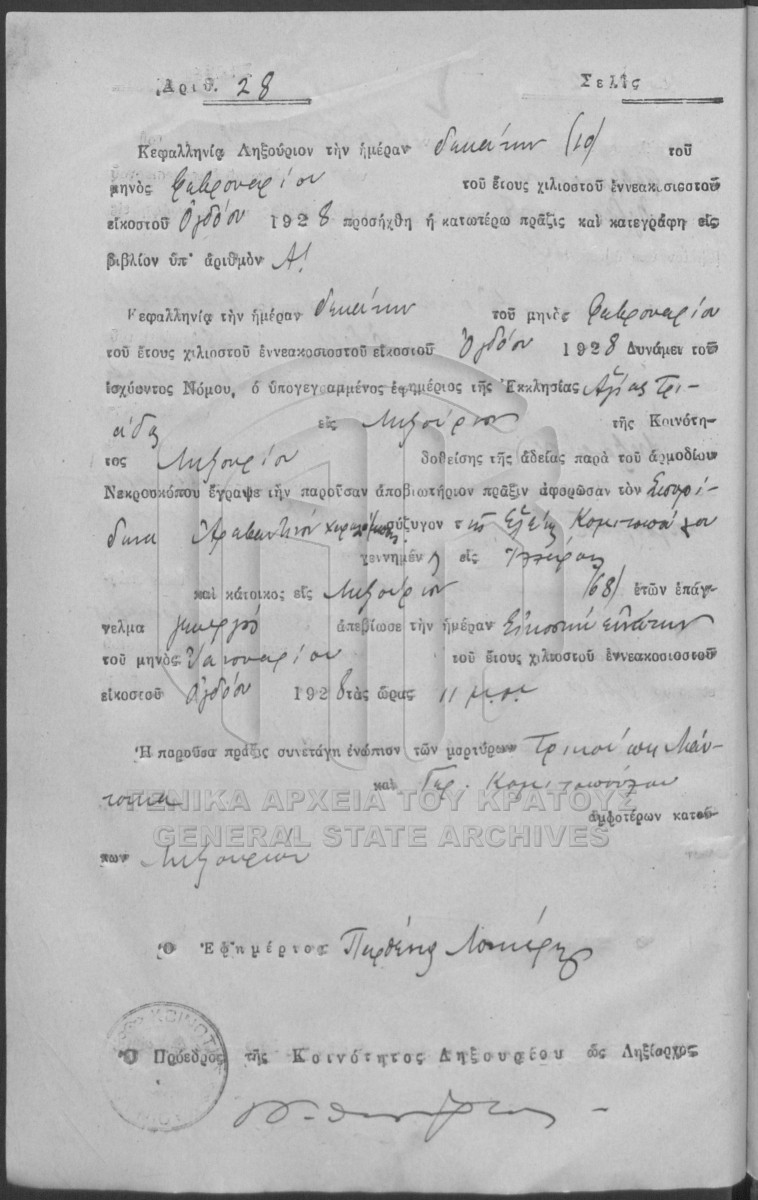 Ἀριθ. 28 Σελὶς
Κεφαλληνίᾳ Ληξούριον τὴν ἡμέραν δεκάτην (10) τοῦ
μηνὸς Φεβρουαρίου τοῦ ἔτους χιλιοστοῦ ἐννεακοσιοστοῦ
εἰκοστοῦ Ὀγδόου 1928 προσήχθη ἡ κατωτέρω πρᾶξις καὶ κατεγράφη εἰς
βιβλίον ὑπ' ἀριθμὸν Α!
Κεφαλληνίᾳ τὴν ἡμέραν δεκάτην τοῦ μηνὸς Φεβρουαρίου
τοῦ ἔτους χιλιοστοῦ ἐννεακοσιοστοῦ εἰκοστοῦ Ὀγδόου 1928 Δυνάμει τοῦ
ἰσχύοντος Νόμου, ὁ ὑπογεγραμμένος ἐφημέριος τῆς Ἐκκλησίας Ἁγίας Τρι-
άδος εἰς Ληξούριον τῆς Κοινότη-
τος Ληξουρίου δοθείσης τῆς ἀδείας παρὰ τοῦ ἁρμοδίου
Νεκροσκόπου ἔγραψε τὴν παροῦσαν ἀποβιωτήριον πρᾶξιν ἀφορῶσαν τὸν Σπυρί-
δωνα Ἀραβαντινόν σύζυγον τῆς Ἑλένης Κομιτοπούλου
γεννημέν εἰς
καὶ κάτοικος εἰς Ληξούριον (68) ἐτῶν ἐπάγ-
γελμα γεωργὸς ἀπεβίωσε τὴν ἡμέραν Εἰκοστὴν ἐνάτην
τοῦ μηνὸς Ἰανουαρίου τοῦ ἔτους χιλιοστοῦ ἐννεακοσιοστοῦ
εἰκοστοῦ Ὀγδόου 1928 τὰς ὥρας 11 μ.μ.
Ἡ παροῦσα πρᾶξις συνετάγη ἐνώπιον τῶν μαρτύρων
καὶ Γερ. Κομιτοπούλου
ΓΕΝΙΚΑ ΑΡΧΕΙΑ ΤΟΥ ΚΡΑΤΟΥΣ
ἀμφοτέρων κατοί-
GENERAL STATE ARCHIVES
κων Ληξουρίου
Ὁ Ἐφημέριος Παρθένιος
Ὁ Πρόεδρος τῆς Κοινότητος Ληξουρίου ὡς Ληξίαρχος